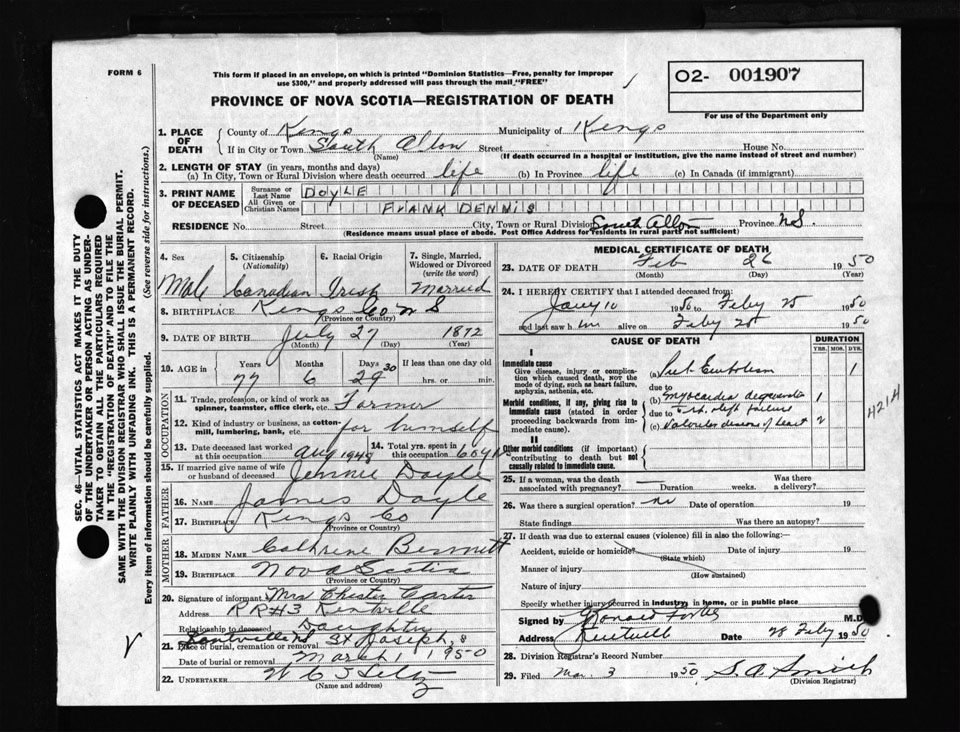 FORM 6
This form if placed in an envelope, on which is printed "Dominion Statistics—Free, penalty for improper
use $300," and properly addressed will pass through the mail "FREE"
O2- 001907
For use of the Department only
PROVINCE OF NOVA SCOTIA—REGISTRATION OF DEATH
SEC. 46—VITAL STATISTICS ACT MAKES IT THE DUTY
OF THE UNDERTAKER OR PERSON ACTING AS UNDER-
TAKER TO OBTAIN ALL THE PARTICULARS REQUIRED
IN THE "REGISTRATION OF DEATH" AND TO FILE THE
SAME WITH THE DIVISION REGISTRAR WHO SHALL ISSUE THE BURIAL PERMIT.
WRITE PLAINLY WITH UNFADING INK. THIS IS A PERMANENT RECORD.
Every item of information should be carefully supplied. (See reverse side for instructions.)
1. PLACE OF DEATH County of Kings Municipality of Kings
If in City or Town South Alton Street House No.
(Name) (If death occurred in a hospital or institution, give the name instead of street and number)
2. LENGTH OF STAY (in years, months and days)
(a) In City, Town or Rural Division where death occurred life (b) In Province life (c) In Canada (if immigrant)
3. PRINT NAME OF DECEASED Surname or Last Name DOYLE
All Given or Christian Names FRANK DENNIS
RESIDENCE No. Street City, Town or Rural Division South Alton Province N.S.
(Residence means usual place of abode. Post Office Address for residents in rural parts not sufficient)
4. Sex 5. Citizenship (Nationality) 6. Racial Origin 7. Single, Married, Widowed or Divorced (write the word)
Male Canadian Irish Married
8. BIRTHPLACE Kings Co N S
(Province or Country)
9. DATE OF BIRTH July 27 1872
(Month) (Day) (Year)
10. AGE in Years Months Days If less than one day old
77 6 29 30 hrs. or min.
OCCUPATION
11. Trade, profession, or kind of work as spinner, teamster, office clerk, etc. Farmer
12. Kind of industry or business, as cotton-mill, lumbering, bank, etc. for himself
13. Date deceased last worked at this occupation Aug 1949 14. Total yrs. spent in this occupation 60 yrs
15. If married give name of wife or husband of deceased Jennie Doyle
FATHER
16. NAME James Doyle
17. BIRTHPLACE Kings Co
(Province or Country)
MOTHER
18. MAIDEN NAME Cathrene Bennett
19. BIRTHPLACE Nova Scotia
(Province or Country)
20. Signature of informant Mrs Chester Carter
Address RR#3 Kentville
Relationship to deceased Daughter
21. Place of burial, cremation or removal Kentville NS St Joseph,s
Date of burial or removal March 1 1950
22. UNDERTAKER W C
(Name and address)
MEDICAL CERTIFICATE OF DEATH
23. DATE OF DEATH Feb 26 1950
(Month) (Day) (Year)
24. I HEREBY CERTIFY that I attended deceased from:
Jany 10 1950 to Feby 25 1950
and last saw h im alive on Feby 25 1950
CAUSE OF DEATH DURATION
YRS. MOS. DYS.
I
Immediate cause
Give disease, injury or complication which caused death, not the mode of dying, such as heart failure, asphyxia, asthenia, etc.
(a) Embolism 1
due to
Morbid conditions, if any, giving rise to immediate cause (stated in order proceeding backwards from immediate cause).
(b) 1
due to
(c) of heart 2
4214
II
Other morbid conditions (if important) contributing to death but not causally related to immediate cause.
25. If a woman, was the death associated with pregnancy? Duration weeks. Was there a delivery?
26. Was there a surgical operation? no Date of operation 19
State findings Was there an autopsy?
27. If death was due to external causes (violence) fill in also the following:
Accident, suicide or homicide? Date of injury 19
(State which)
Manner of injury
(How sustained)
Nature of injury
Specify whether injury occurred in industry, in home, or in public place
Signed by M.D.
Address Kentville Date 28 Feby 1950
28. Division Registrar's Record Number
29. Filed Mar. 3 1950 S. A. Smith
(Division Registrar)